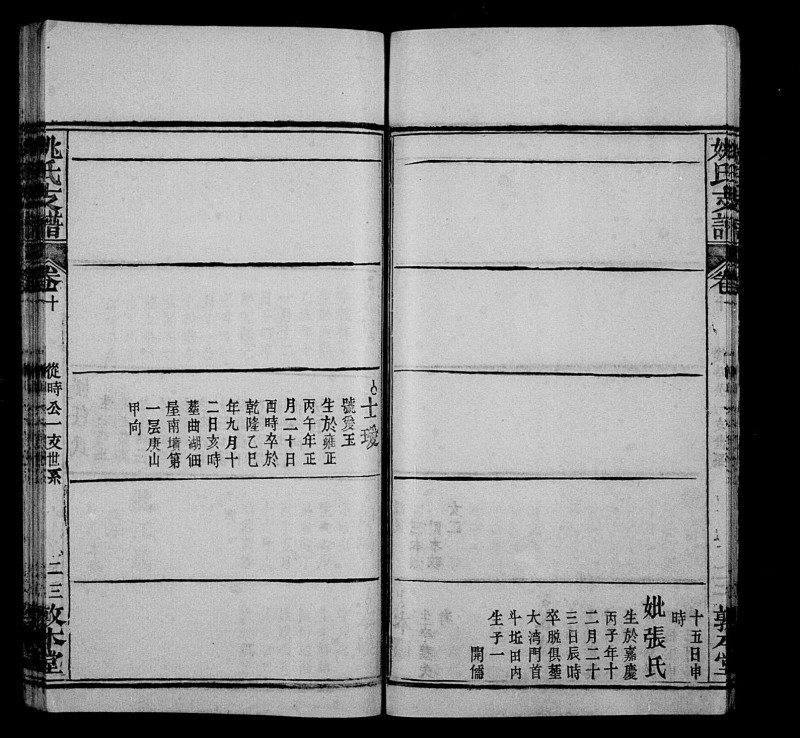 十五日申
時
妣張氏
生於嘉慶
丙子年十
二月二十
三日辰時
卒脱俱塟
大湾門首
斗坵田内
生子一
開儒
士璦
號爱玉
生於雍正
丙午年正
月二十日
酉時卒於
乾隆乙巳
年九月十
二日亥時
塟曲湖佃
屋南墳第
一层庚山
甲向
姚氏支譜
卷十
從時公一支世系
二三
敦本堂